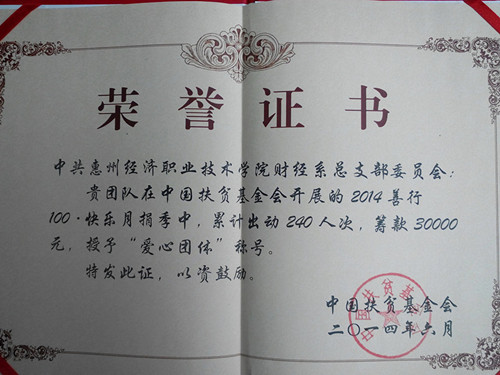 荣誉证书
中共惠州经济职业技术学院财经系总支部委员会：
贵团队在中国扶贫基金会开展的2014善行
100·快乐月捐季中，累计出动240人次，筹款30000
元，授予“爱心团体”称号。
特发此证，以资鼓励。
中国扶贫基金会
二〇一四年六月
中国扶贫基金会